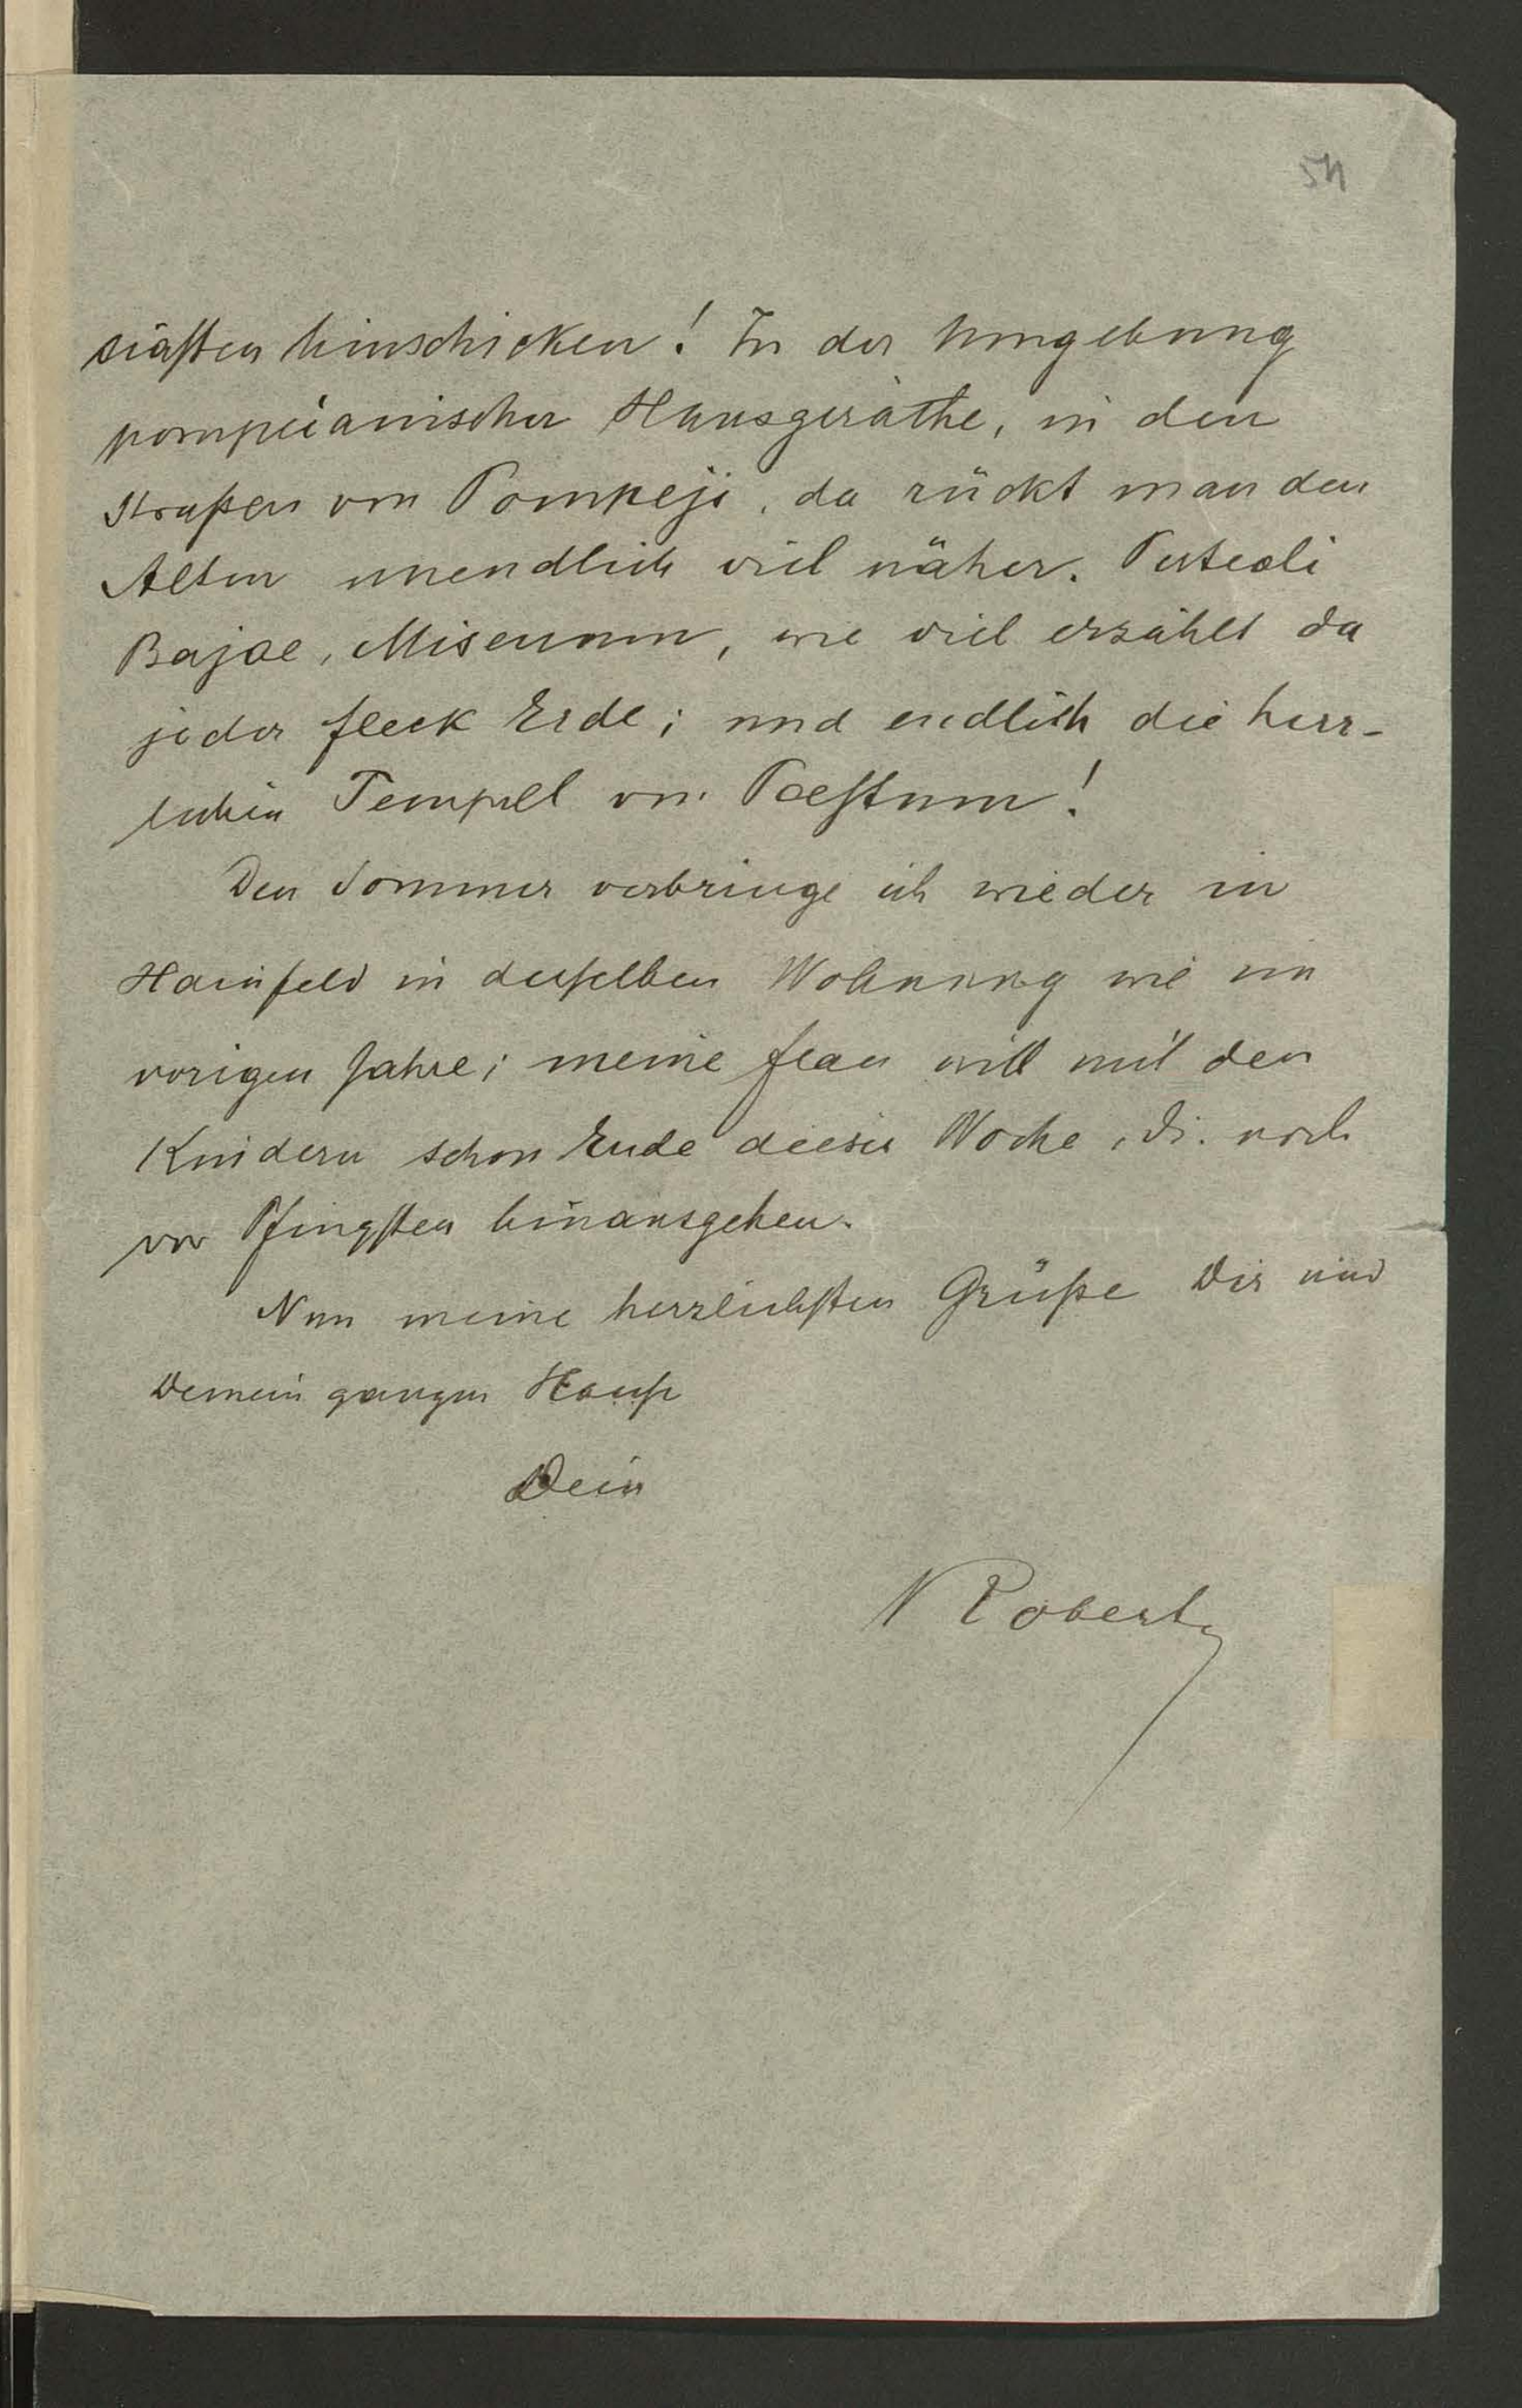 54
siasten hinschicken! In der Umgebung
pompeianischer Hausgeräthe, in den
Straßen von Pompeji, da rückt man den
Alten unendlich viel näher. Puteoli
Bajae, Misenum, wie viel erzählt da
jeder Fleck Erde; und endlich die herr-
lichen Tempel von Paestum!
Den Sommer verbringe ich wieder in
Hainfeld in derselben Wohnung wie im
vorigen Jahre; meine Frau will mit den
Kindern schon Ende dieser Woche, di. noch
vor Pfingsten hinausgehen.
Nun meine herzlichsten Grüße Dir und
Deinem ganzen Hause
Dein
Robert